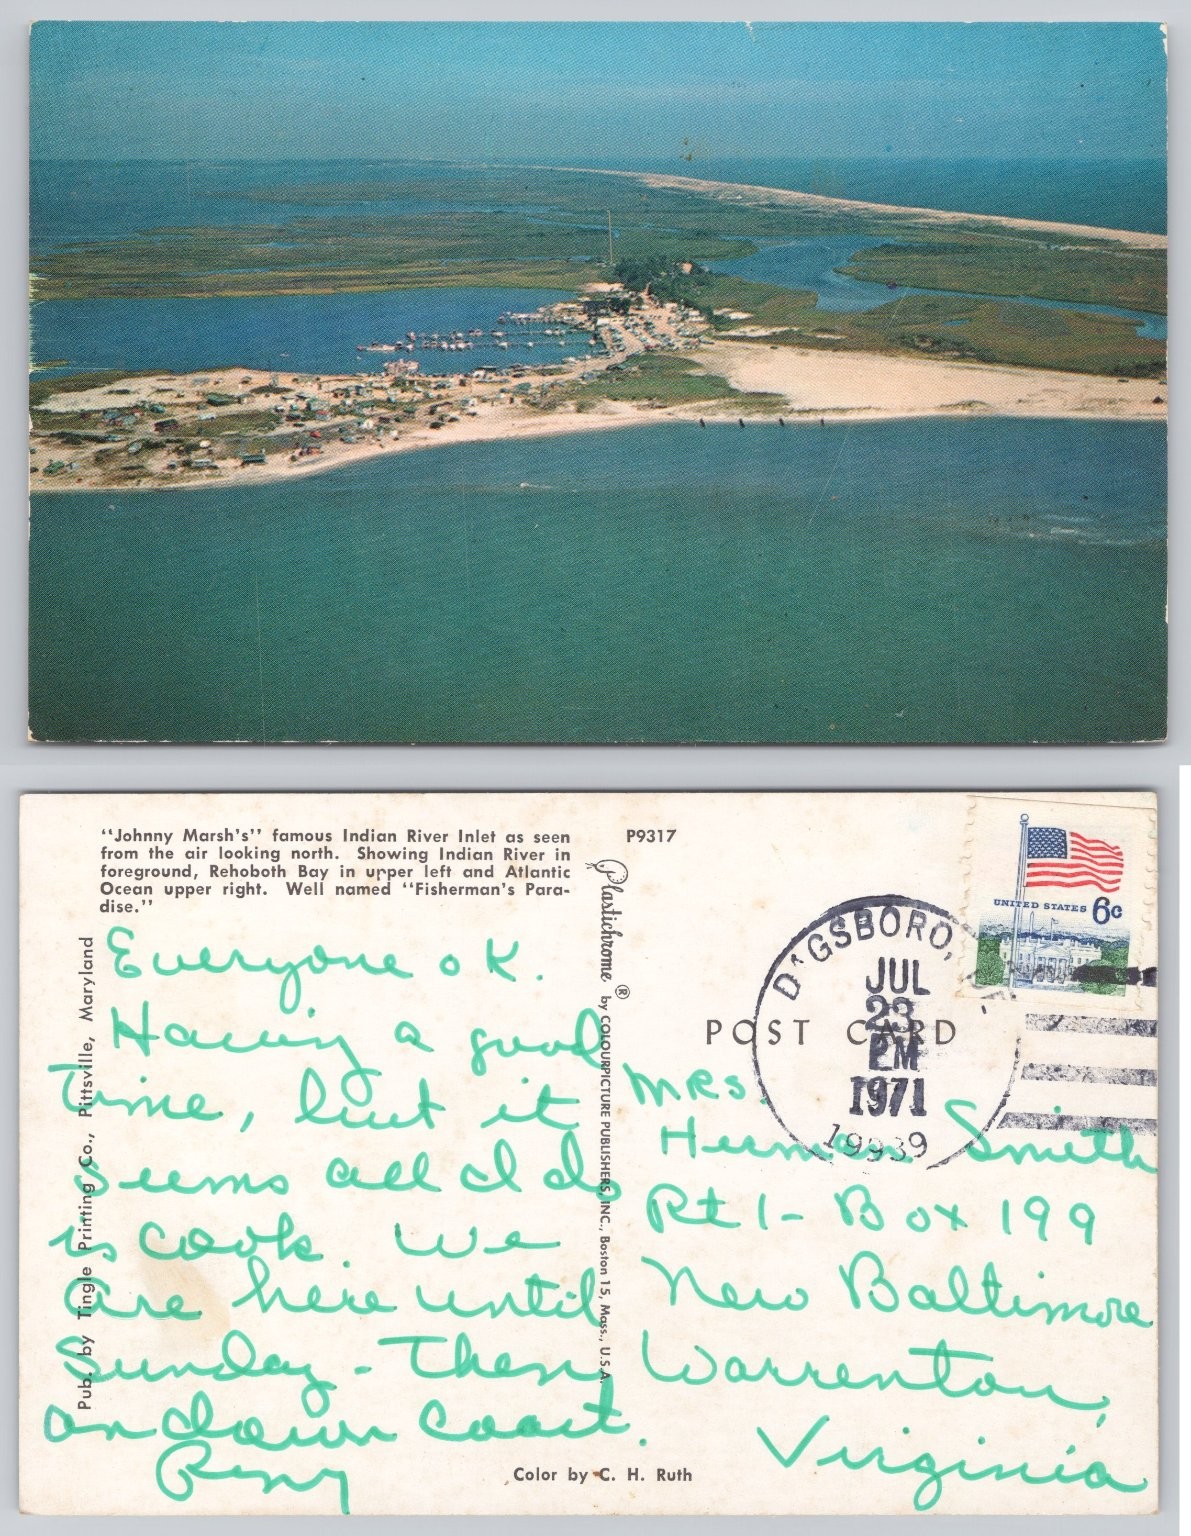 "Johnny Marsh's" famous Indian River Inlet as seen
from the air looking north. Showing Indian River in
foreground, Rehoboth Bay in upper left and Atlantic
Ocean upper right. Well named "Fisherman's Para-
dise."
P9317
Pub. by Tingle Printing Co., Pittsville, Maryland
Plastichrome ® by COLOURPICTURE PUBLISHERS, INC., Boston 15, Mass., U.S.A.
UNITED STATES 6c
DAGSBORO,
JUL
23
PM
1971
19939
POST CARD
Everyone OK.
Having a good
time, but it
seems all I do
is cook. We
are here until
Sunday - Then
on down coast.
Mrs.
Herman Smith
Rt 1 - Box 199
New Baltimore
Warrenton,
Virginia
Color by C. H. Ruth